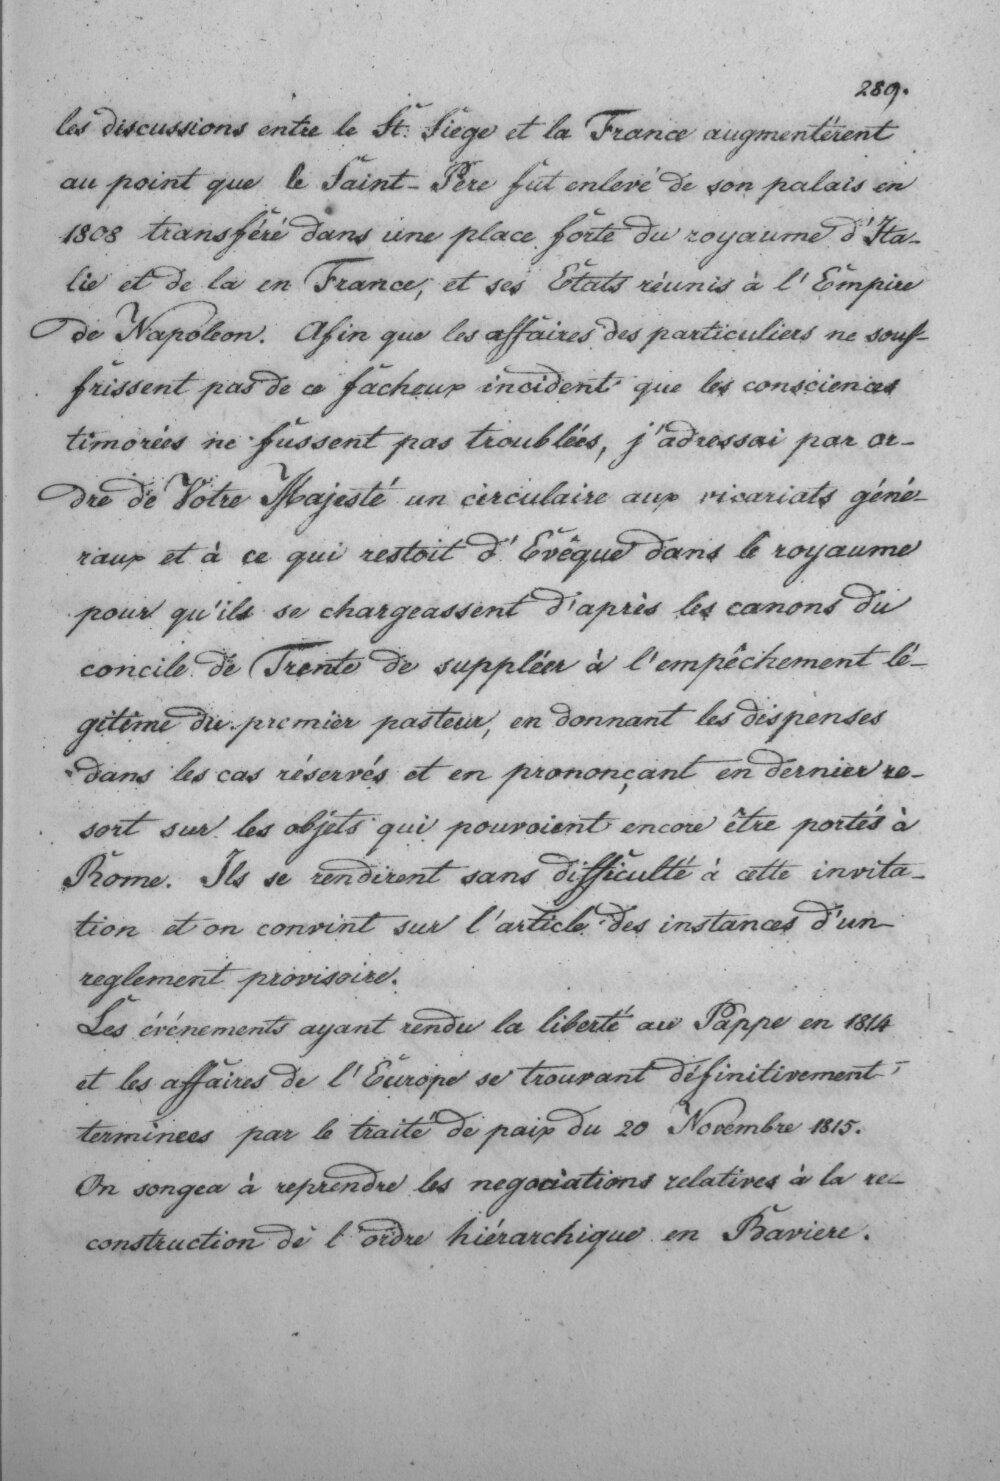 289.
les discussions entre le St. Siège et la France augmentèrent
au point que le Saint-Père fut enlevé de son palais en
1808 transféré dans une place forte du royaume d'Ita-
lie et de la en France, et ses Etats réunis à l'Empire
de Napoleon. Afin que les affaires des particuliers ne souf-
frissent pas de ce facheux incident que les consciences
timorées ne fussent pas troublées, j'adressai par or-
dre de Votre Majesté un circulaire aux vicariats géné-
raux et à ce qui restoit d'Evêque dans le royaume
pour qu'ils se chargeassent d'après les canons du
concile de Trente de suppléer à l'empêchement lé-
gitime du premier pasteur, en donnant les dispenses
dans les cas réservés et en prononçant en dernier re-
sort sur les objets qui pouvoient encore être portés à
Rome. Ils se rendirent sans difficulté à cette invita-
tion et on convint sur l'article des instances d'un
reglement provisoire.
Les événements ayant rendu la liberté au Pappe en 1814
et les affaires de l'Europe se trouvant définitivement
terminees par le traité de paix du 20 Novembre 1815.
On songea à reprendre les negociations relatives à la re-
construction de l'ordre hiérarchique en Baviere.